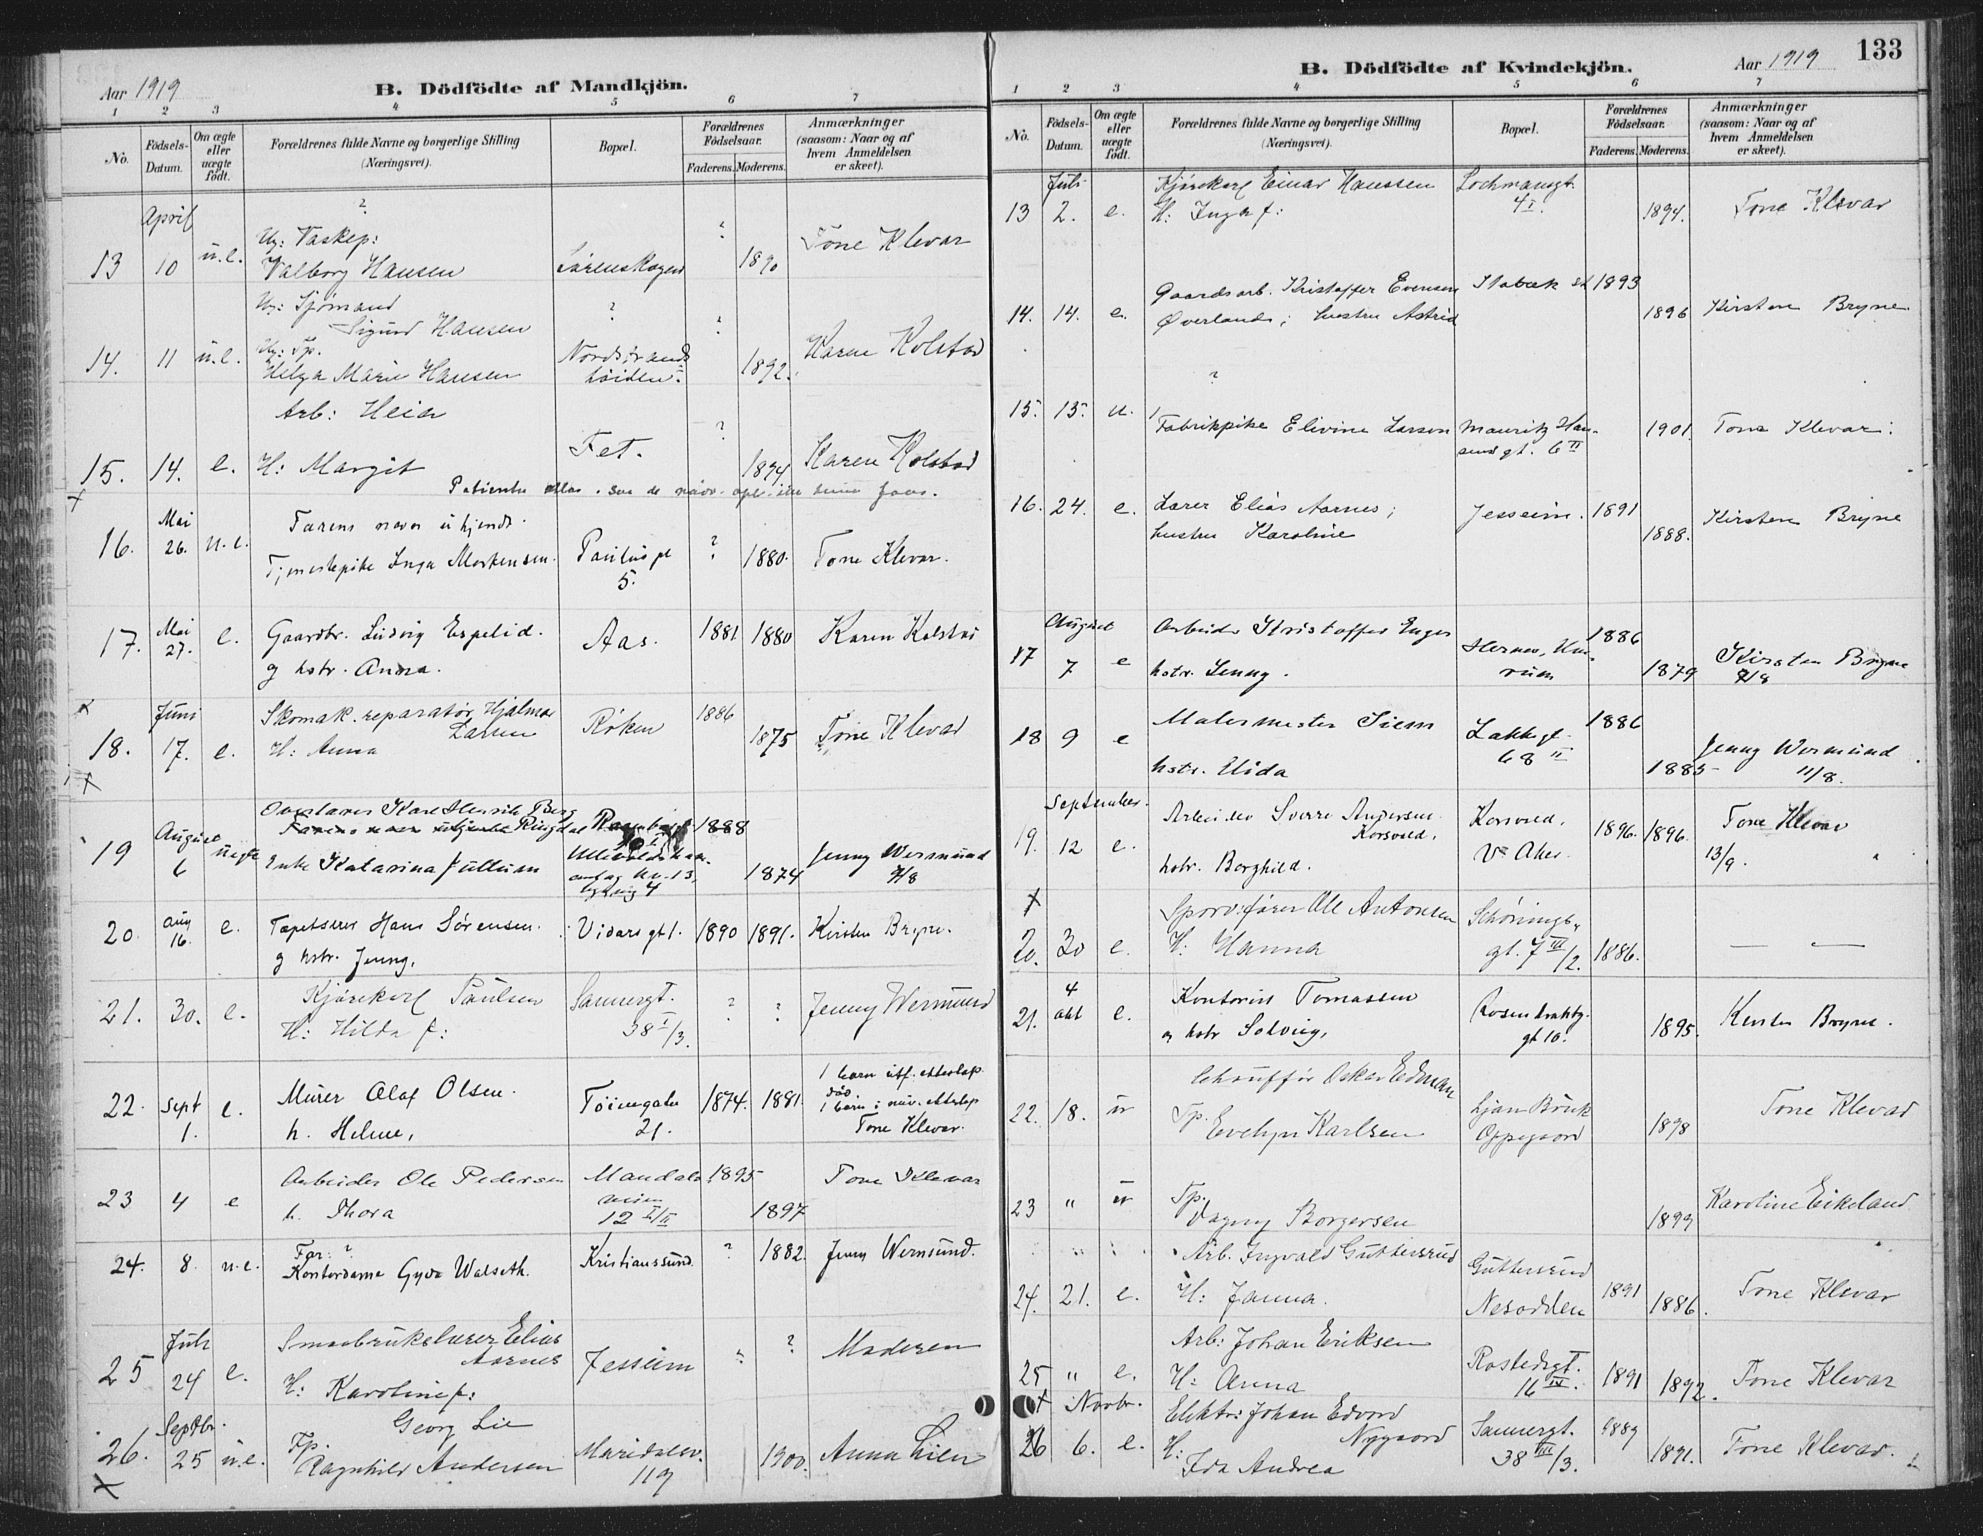 Aar 1919
B. Dödfödte af Mandkjön.
1 2 3 4 5 6 7
No.
Födsels-Datum.
Om ægte eller uægte født.
Forældrenes fulde Navne og borgerlige Stilling (Næringsvei).
Bopæl.
Forældrenes Födselsaar.
Faderens. Moderens.
Anmærkninger (saasom: Naar og af hvem Anmeldelsen er skeet).
April ?
Ug: Vaskep: ?
13 10 u.e. Valborg Hansen Sørenskogen 1890 Tone Klevar
Ug: Sjømand
Sigurd Hansen ? ?
Ug: Tp.
14. 11 u.e. Helga Marie Hansen Nordstrands høiden. 1892. Karen Kolstad
Arb: Heier ?
15. 14. e. H: Margit Fet. 1894 Karen Kolstad
x
Mai Farens navn ukjendt.
16. 26. u.e. Tjenestepike Inga Mortensen. Paulus pl 5. ? 1880. Tone Klevar.
17. Mai 27. e. Gaardbr. Ludvig Espelid. Aas. 1881 1880 Karen Kolstad
og hstr. Anna.
x
Juni Skomak. reparatør Hjalmar Larsen Røken 1886
18. 17. e. H: Anna 1875 Tone Klevar
x
Ovnslaver Karl Henrik Berg
Farens navn ukjendt Ringdal 1888
19 August 6 uegte Enke Katarina Jullum 1874 Jenny Wermund 9/8
20. Aug 16. e. Tapetserer Hans Sørensen. Vidars gt 1. 1890 1891. Kirsten Bryne.
og hstr. Jenny.
Kjørekarl Paulsen Sannergt. ? ?
21. 30. e. H: Hilda f: 38 I/3. Jenny Wermund
1 barn utf. etterløp død
22. Sept 1. e. Murer Olaf Olsen. Töiengaten 21. 1874. 1881. 1 barn i nuv. etterløp
h. Helene, Tone Klevar.
Arbeider Ole Pedersen Mandals 1895 Tone Klevar
23 4 e h. Thora veien 12 I/II 1897
Far: ?
24. 8. u.e. Kontordame Gyda Walseth. Kristianssund ? 1882. Jenny Wermund.
Juli Smaabrukslærer Elias Aarnes
25 24 e. H: Karoline f: Jessheim ? ? Moderen
Septbr. Georg Lie
26. 25 u.e. Tp. Ragnhild Andersen Maridalsv. 119 1900. Anna Lien
x
133
B. Dödfödte af Kvindekjön.
Aar 1919
1 2 3 4 5 6 7
No.
Födsels-Datum.
Om ægte eller uægte födt.
Forældrenes fulde Navne og borgerlige Stilling (Næringsvei).
Bopæl.
Forældrenes Födselsaar.
Faderens. Moderens.
Anmærkninger (saasom: Naar og af hvem Anmeldelsen er skeet).
Juli Kjørekarl Einar Hanssen Lochmannsgt.
13 2. e. H: Inga f: 4 I. 1894. Tone Klevar
Gaardsarb. Kristoffer Evensen Stabæk st 1893
14. 14. e. Øverland; hustru Astrid 1896 Kirsten Bryne
?
15. 15. u. Fabrikpike Elivine Larsen Mauritz Hansens gt. 6 II 1901 Tone Klevar.
16. 24. e. Lærer Elias Aarnes; Jesseim. 1891
hustru Karoline 1888. Kirsten Bryne
August Arbeider Kristoffer Enger 1886
17 7 e hstr. Jenny. Hernes, Hurum 1879 Kirsten Bryne 9/8
Malermester Siem Lakkegt. 68 II 1886
18 9 e hstr. Elida 1885 Jenny Wermund 11/8.
September. Arbeider Sverre Andersen Korsvold. Korsvold. V. Aker. 1896. 1896. Tone Klevar
19. 12 e. hstr. Borghild. 13/9.
x Sporv:fører Ole Antonsen Schønings
20. 30 e. H: Hanna gt. 7 III/2. 1886. — —
4
21. okt e. Kontorist Tomassen Rosenkrantz
og hstr Solveig, gt 10. 1895. Kirsten Bryne.
Chauffør Oskar Edman
22. 18. u Tp. Evelyn Karlsen Ljan Bruk Oppegaard 1898 Tone Klevar
23 " u Tp. Dagny Borgersen 1899 Karoline Eikeland
Arb. Ingvald Guttersrud Guttersrud
24. 21. e. H: Janna. Nesodden 1891 1886. Tone Klevar
Arb: Johan Eriksen
25 " e. H: Anna Rostedsgt. 16 IV. 1891 1892. Tone Klevar
x Novbr. Elektr: Johan Edvard Nygaard Sannergt. 1889
26 6. e. H: Ida Andrea 38 III/3. 1891. Tone Klevar.